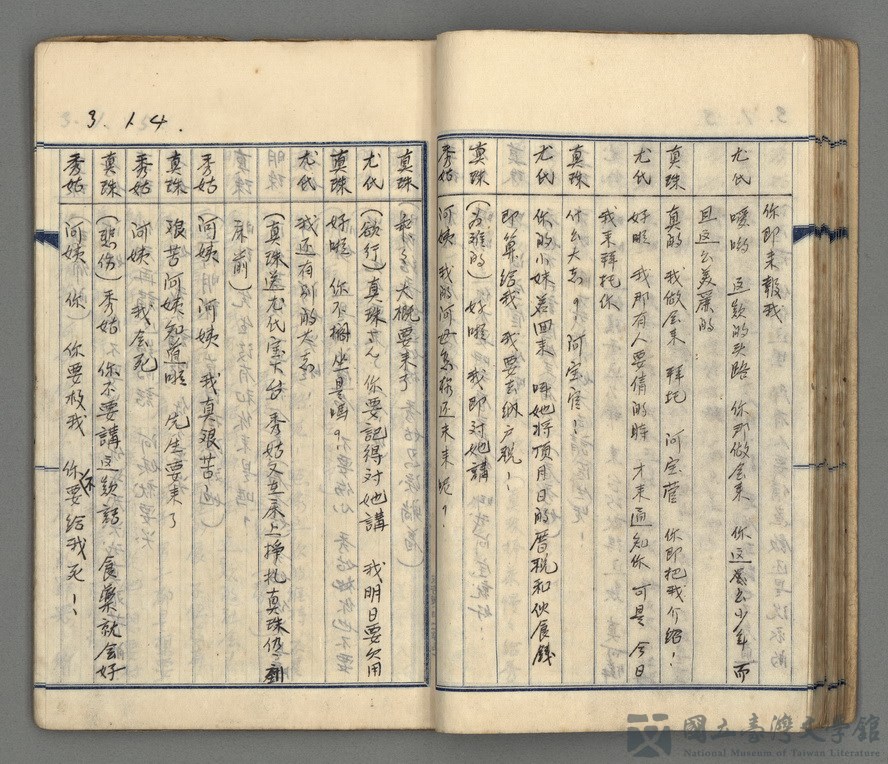 你即来報我
尤氏 噯喲 這款的头路 你那做会来 你這麼少年 而
且這么美麗的
真珠 真的 我做会来 拜托 阿宝官 你即把我介绍！
尤氏 好啦 我那有人要倩的時 才来通知你 可是 今日
我来拜托你
真珠 什么大志？ 阿宝官！
尤氏 你的小妹若回来 呌她将頂月日的厝税和伙食錢
即算給我 我要去納戶税！
真珠 (为难的) 好啦 我即对她講
秀姑 阿姨 我的阿母怎樣还未来呢？
3. 1 4.
真珠 大概要来了
尤氏 (欲行) 真珠 你要記得对她講 我明日要欠用
真珠 好啦 你不擱坐是嗎？
尤氏 我还有别的大志！
(真珠送尤氏 秀姑又在床上掙扎 真珠
床前)
秀姑 阿姨 阿姨 我真艰苦
真珠 艰苦 阿姨知道啦 先生要来了
秀姑 阿姨 我会死
真珠 (悲伤) 秀姑 你不要講這款話 食藥就会好
秀姑 阿姨 你 你要救我 你不要給我死！！
國立臺灣文學館
National Museum of Taiwan Literature